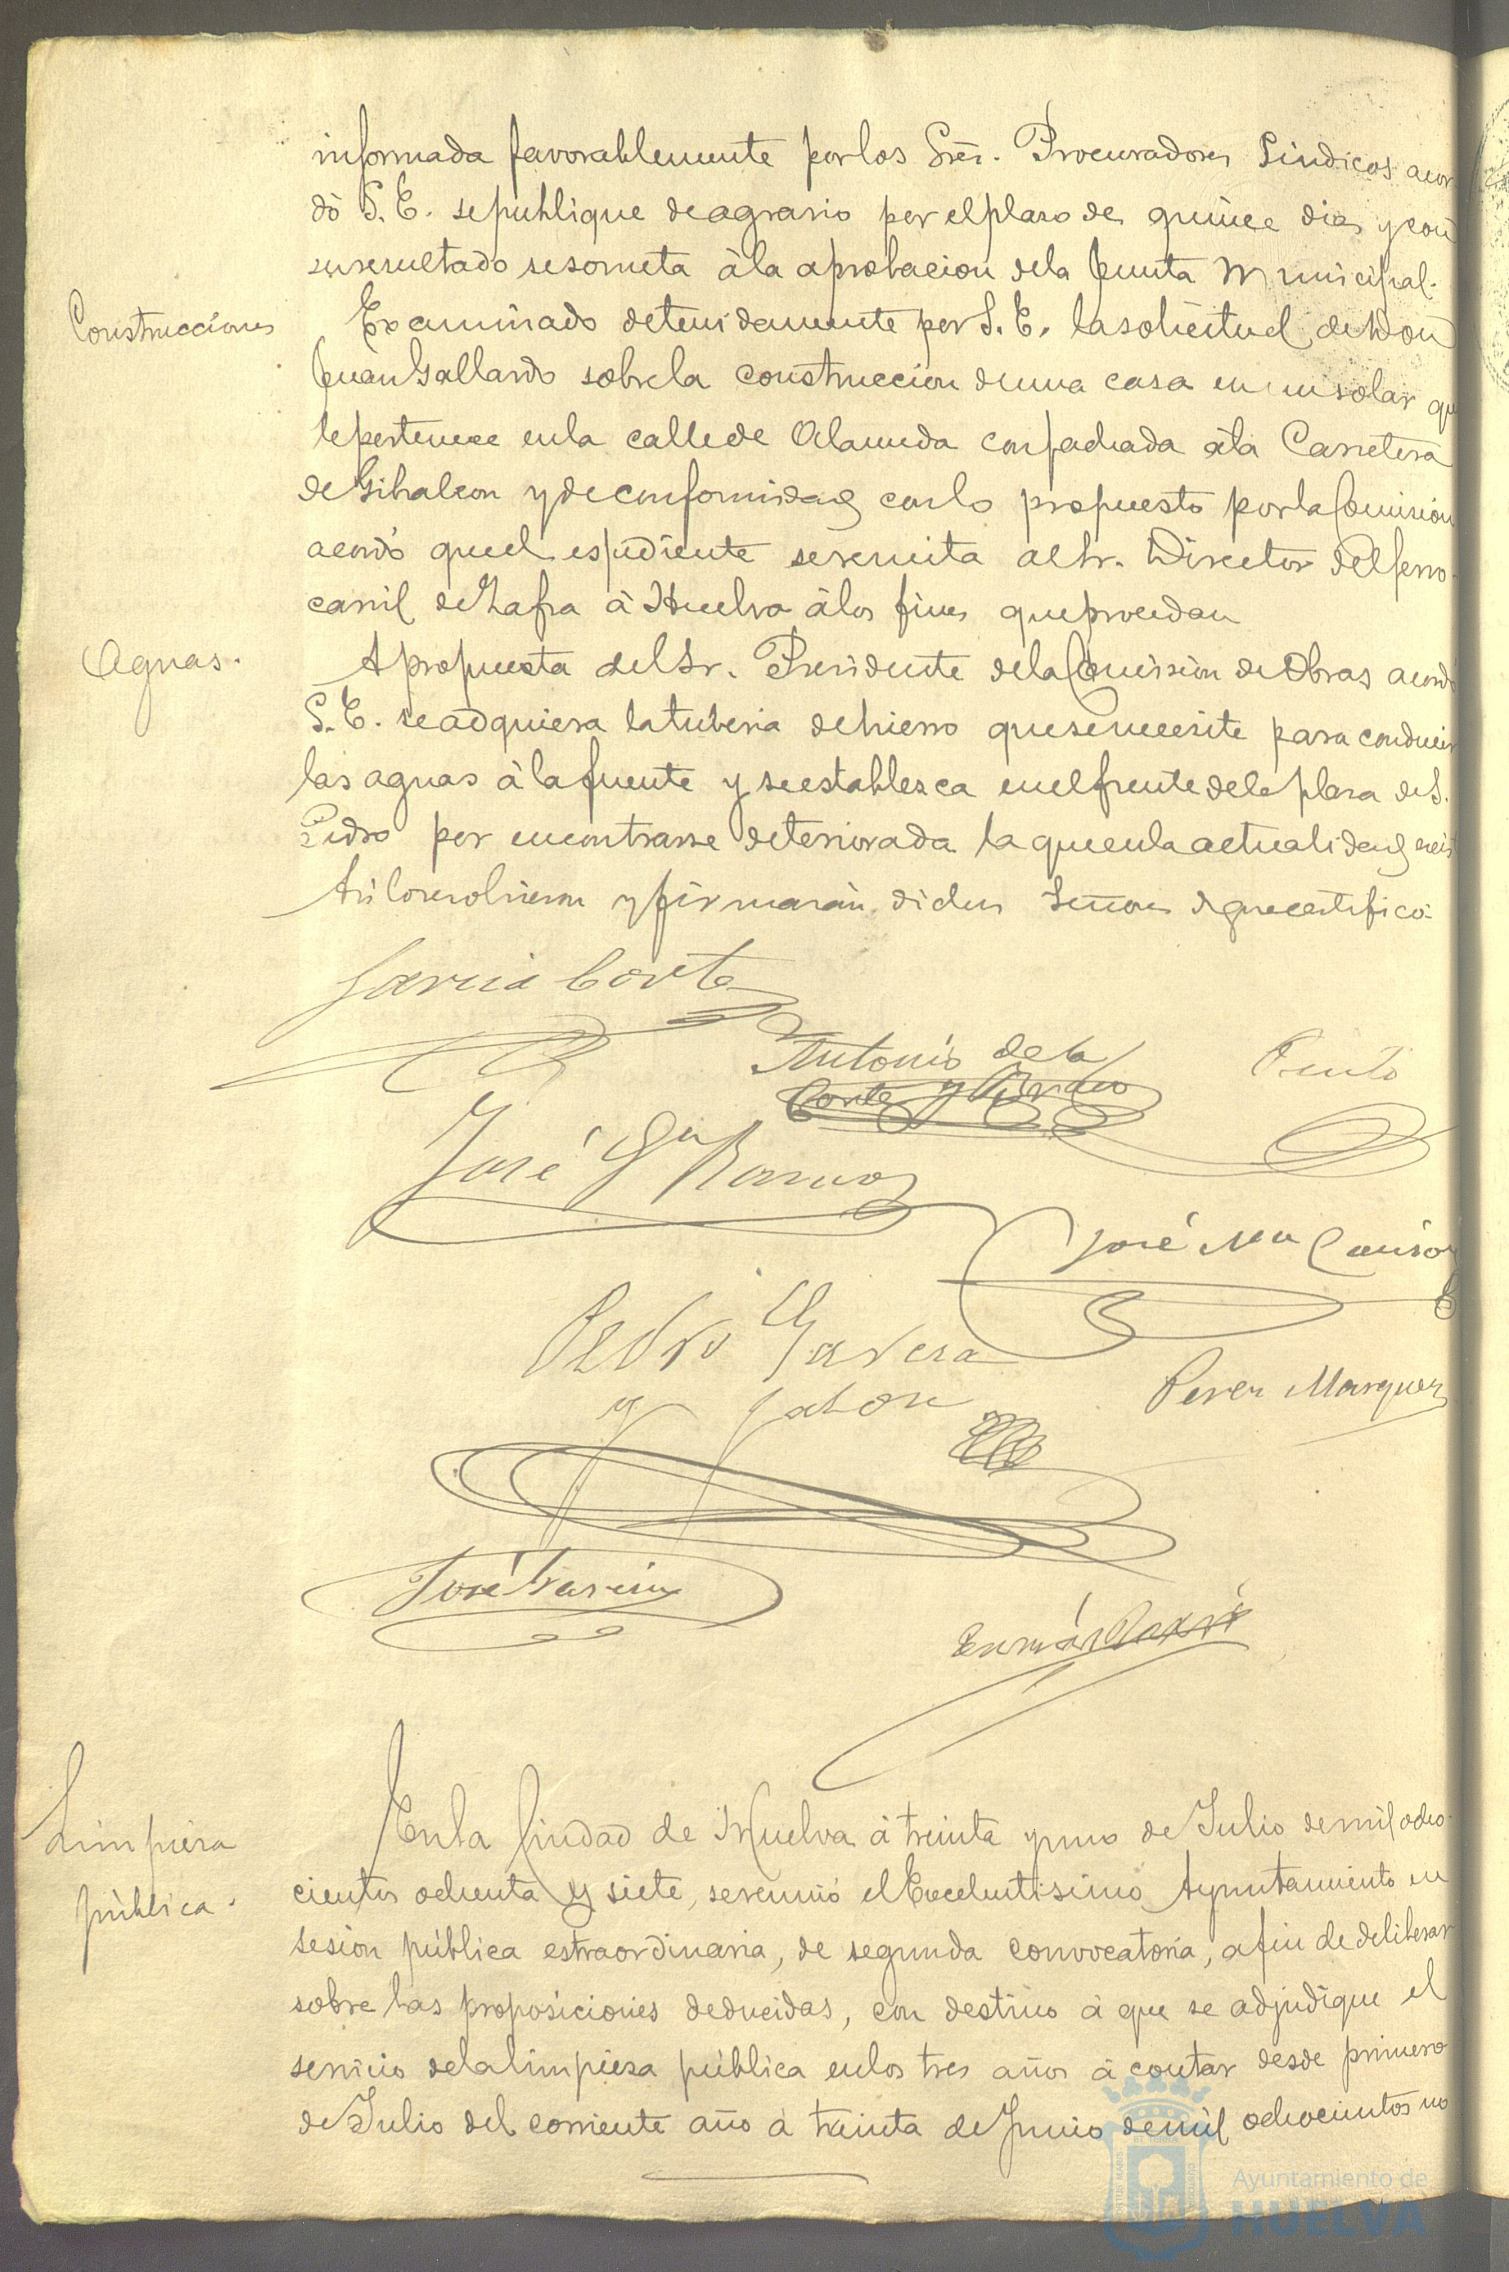 informada favorablemente por los Sres. Procuradores Sindicos acor
dó S. E. se publique de agravio por el plazo de quince dias y con
su resultado se someta á la aprobacion de la Junta Municipal.
Construcciones
Examinado detenidamente por S. E. la solicitud de Don
Juan Gallardo sobre la construccion de una casa en un solar qu
le pertenece en la calle de Alameda con fachada á la Carretera
de Gibraleon y de conformidad con lo propuesto por la Comision
acordó que el espediente se remita al Sr. Director del ferro-
carril de Zafra á Huelva á los fines que procedan
Aguas.
A propuesta del Sr. Presidente de la Comision de Obras acordó
S. E. se adquiera la tuberia de hierro que se necesite para conducir
las aguas á la fuente y se establezca en el frente de la plaza de S.
Pedro por encontrarse deteriorada la que en la actualidad
Asi lo resolvieron y firmarán dichos Señores de que certifico.
Garcia Corte
Antonio de la
Corte y
José Gª Ramos
José Mª
Pedro Garcia
y Jalon
Perez Marquez
José Garcia
Limpieza
pública.
En la Ciudad de Huelva á treinta y uno de Julio de mil ocho-
cientos ochenta y siete, se reunió el Excelentisimo Ayuntamiento en
sesion pública estraordinaria, de segunda convocatoria, a fin de deliberar
sobre las proposiciones deducidas, con destino á que se adjudique el
servicio de la limpieza pública en los tres años á contar desde primero
de Julio del corriente año á treinta de Junio de mil ochocientos no
Ayuntamiento de
HUELVA